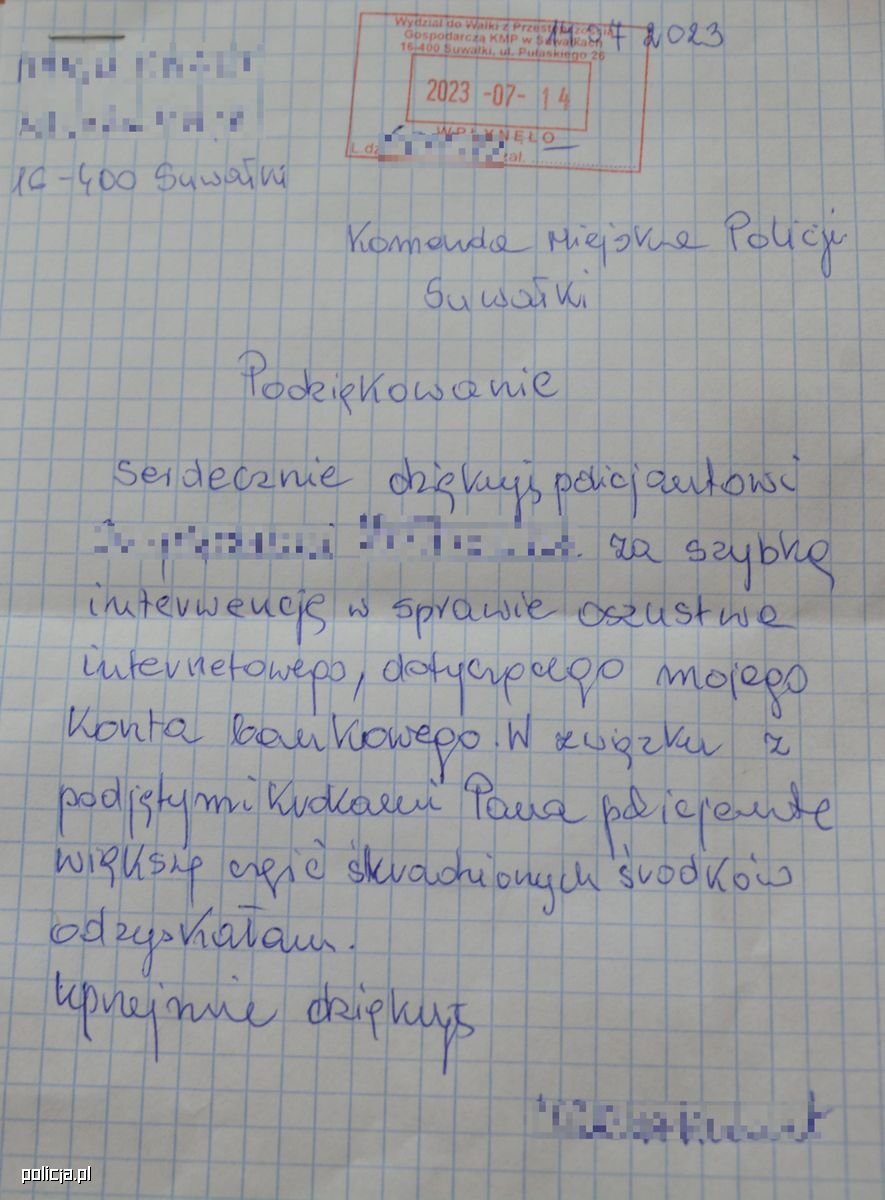 07 2023
Wydział do Walki z Przestępczością
Gospodarczą KMP w Suwałkach
16-400 Suwałki, ul. Pułaskiego 26
2023 -07- 14
WPŁYNĘŁO
L. dz. zał.
16-400 Suwałki
Komenda Miejska Policji
Suwałki
Podziękowanie
Serdecznie dziękuję policjantowi
za szybką
interwencję w sprawie oszustwa
internetowego, dotyczącego mojego
konta bankowego. W związku z
podjętymi krokami Pana policjanta
większą część skradzionych środków
odzyskałam.
Uprzejmie dziękuję
policja.pl